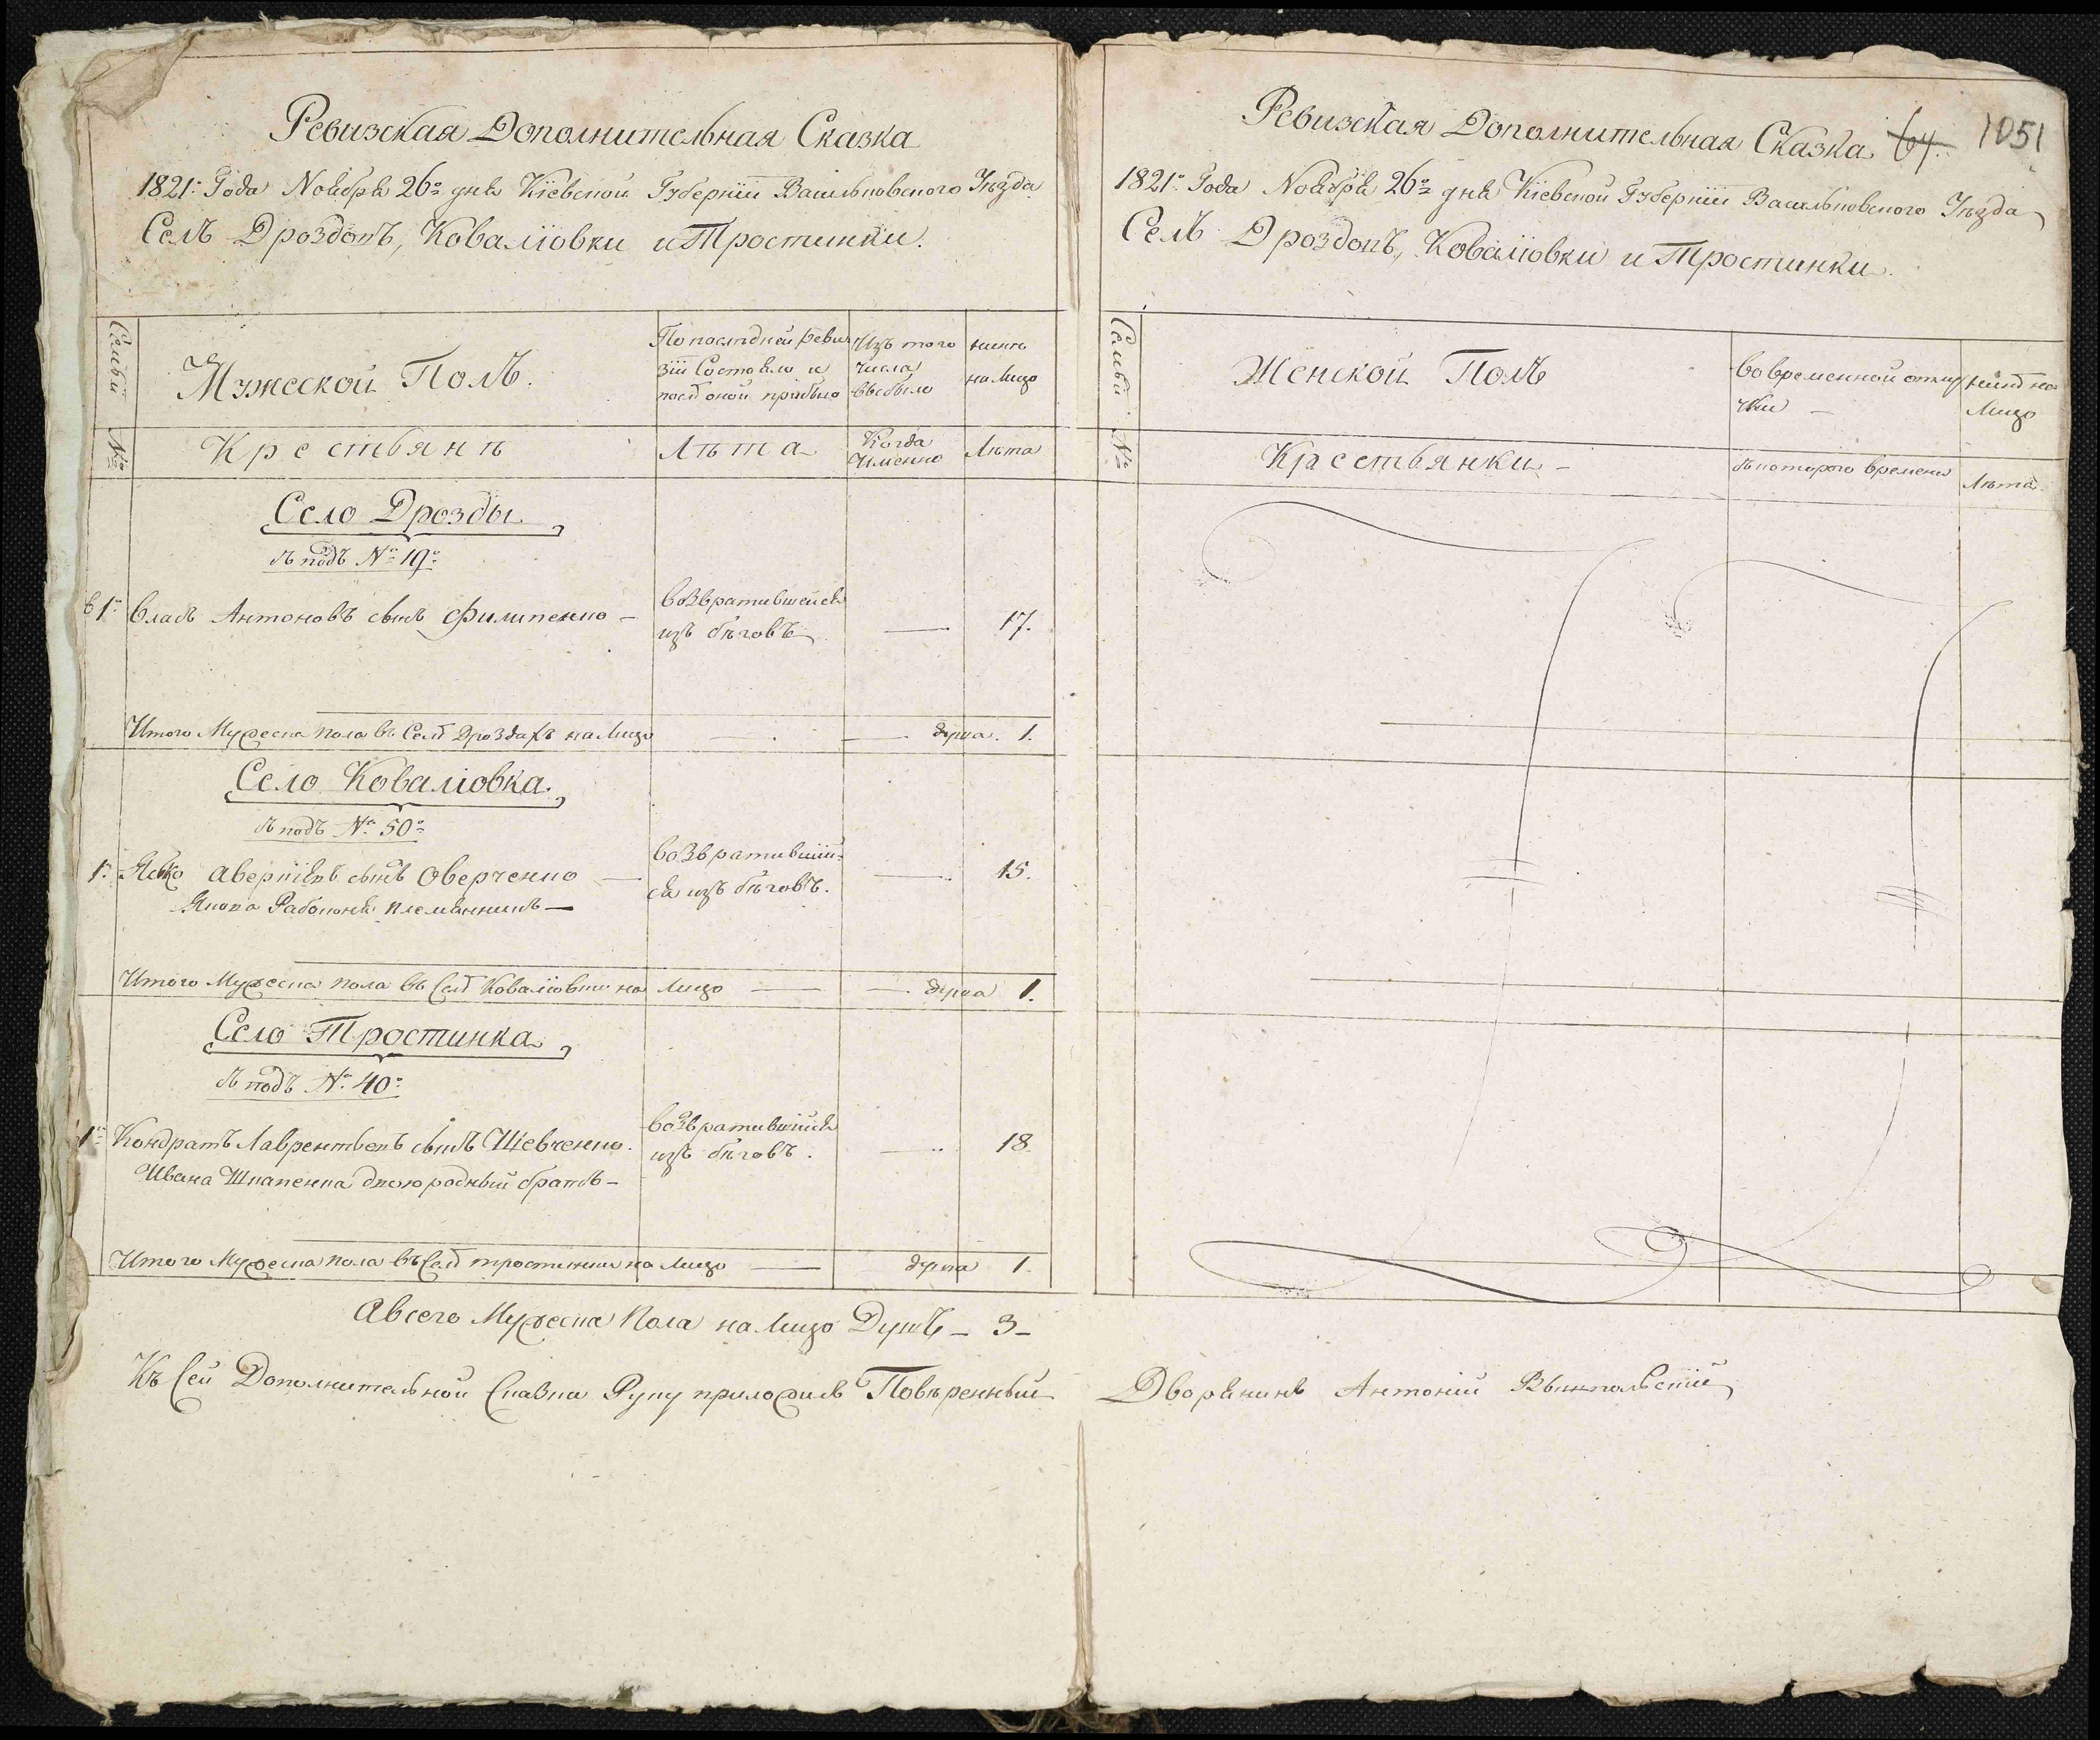 Ревизская Дополнительная Сказка
1821го Года Ноября 26го дня Кіевской Губерніи Васильковского Уѣзда
Селъ Дроздовъ, Коваліовки и Тростинки.
Семьи
№
Мужеской Полъ.
По последней реви
зіи Состояло и
послѣ оной прибыло
Изъ того
числа
выбыло
нынѣ
на лицо
Крестьянѣ
Лѣта
Когда
Именно
Лѣта
Село Дрозды
къ подъ № 19о
1 Власъ Антоновъ сынъ Филипенко
возвратившейся
изъ бѣговъ
17.
Итого Мужеска пола въ Селѣ Дроздахъ на лицо душа. 1.
Село Коваліовка.
къ подъ № 50о
1 Яско Аверкіевъ сынъ Оверченко
возвративший
ся изъ бѣговъ.
15.
Якова Рабоконя племянникъ
Итого Мужеска пола въ Селѣ Коваліовки на лицо душа 1.
Село Тростинка
къ подъ № 40о
1 Кондратъ Лаврентьевъ сынъ Шевченко.
возвратившийся
изъ бѣговъ.
18.
Ивана Шпаченка двоюродный братъ
Итого Мужеска пола въ Селѣ тростинки на лицо душа 1.
Авсего Мужеска Пола на лицо Душъ 3
Къ Сей Дополнительной Сказки Руку приложилъ Повѣренный Дворянинъ Антоній
Ревизская Дополнительная Сказка 64. 1051
1821го Года Ноября 26го дня Кіевской Губерніи Васильковского Уѣзда
Селъ Дроздовъ, Коваліовки и Тростинки.
Семьи
№
Женской Полъ
во временной отлу
чки
нынѣ на
лицо
Крестьянки
съ котораго времени
Лѣта